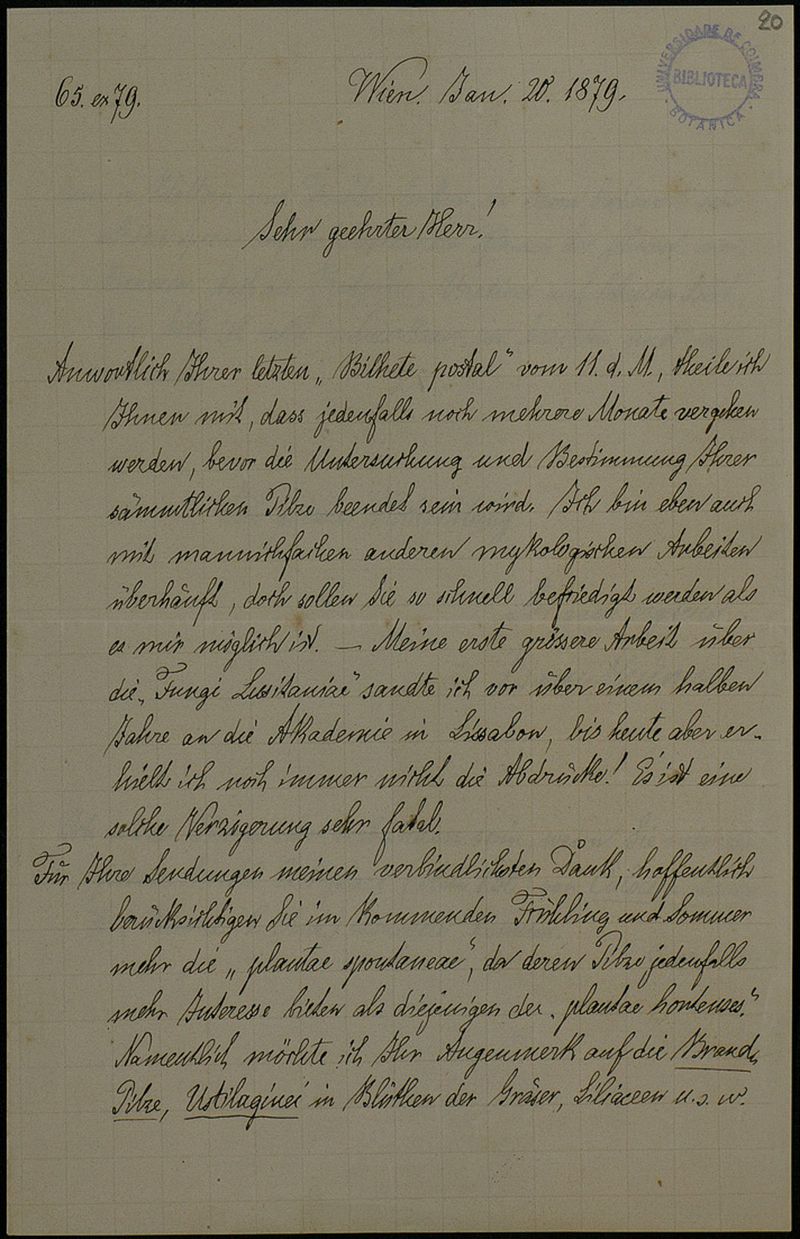 20
UNIVERSIDADE DE COIMBRA
BIBLIOTECA
BOTANICA
65. ex 79.
Wien. Jan. 20. 1879.
Sehr geehrter Herr!
Anwortlich Ihrer letzten „Bilhete postal" vom 11. d. M., theile ich
Ihnen mit, dass jedenfalls noch mehrere Monate vergehen
werden, bevor die Untersuchung und Bestimmung Ihrer
sämmtlichen Pilze beendet sein wird. Ich bin eben auch
mit mannichfachen anderen mykologischen Arbeiten
überhäuft, doch sollen Sie so schnell befriedigt werden als
es mir möglich ist. — Meine erste grössere Arbeit über
die „Fungi Lusitaniae" sandte ich vor über einem halben
Jahre an die Akademie in Lissabon, bis heute aber er-
hielt ich noch immer nicht die Abdrücke! Es ist eine
solche Verzigerung sehr fatal.
Für Ihre Sendungen meinen verbindlichsten Dank, hoffentlich
berücksichtigen Sie im kommenden Frühling und Sommer
mehr die „plantae spontaneae", da deren Pilze jedenfalls
mehr Interesse bieten als diejenigen der „plantae hortenses."
Namentlich möchte ich Ihr Augenmerk auf die Brand-
Pilze, Ustilaginei in Blüthen der Gräser, Liliaceen u. s. w.